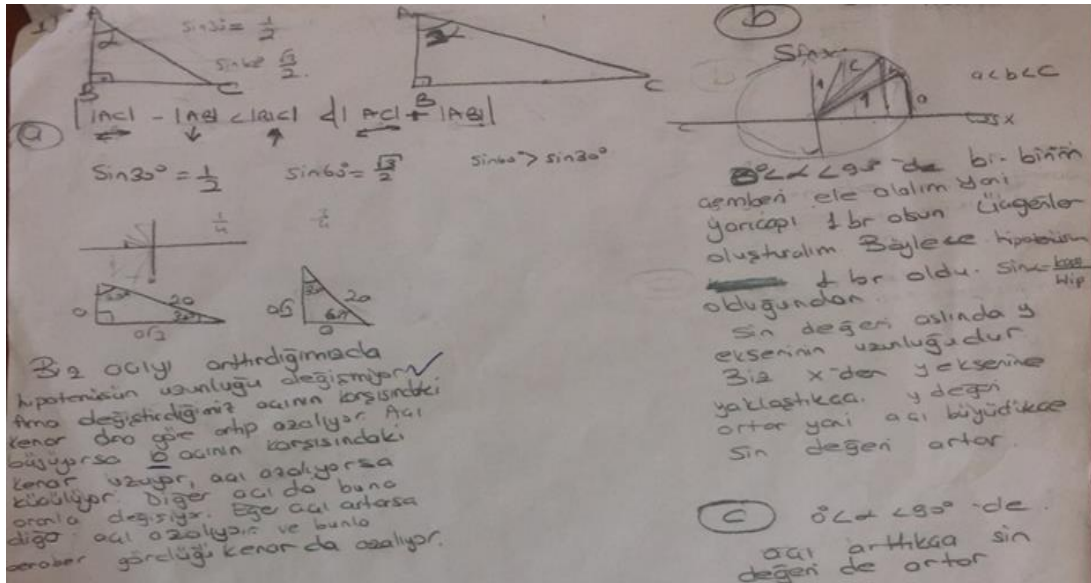 A
α
B
C
Sin30 = 1/2
Sin60 = √3/2
A
B
C
a
|AC| - |AB| < |BC| < |AC| + |AB|
Sin30° = 1/2
Sin60° = √3/2
Sin60° > Sin30°
1/4
20
a√3
20
a√3
Biz açıyı arttırdığımızda
hipotenüsün uzunluğu değişmiyor
Ama değiştirdiğimiz açının karşısındaki
kenar ona göre artıp azalıyor. Açı
büyüyorsa o açının karşısındaki
kenar uzuyor, açı azalıyorsa
küçülüyor. Diğer açı da buna
oranla değişiyor. Eğer açı artarsa
diğer açı azalıyor ve bunla
beraber gördüğü kenar da azalıyor.
b
Sinx
a<b<c
x
0°<α<90° de bir birim
çemberi ele alalım yani
yarıçapı 1 br olsun Üçgenler
oluşturalım Böylece hipotenüsün
1 br oldu. Sinx = kar/Hip
olduğundan
Sin değeri aslında y
ekseninin uzunluğudur
Biz x-den y eksenine
yaklaştıkca y değeri
artar yani açı büyüdükce
Sin değeri artar.
c
0°<α<90° -de
açı arttıkca sin
değeri de artar